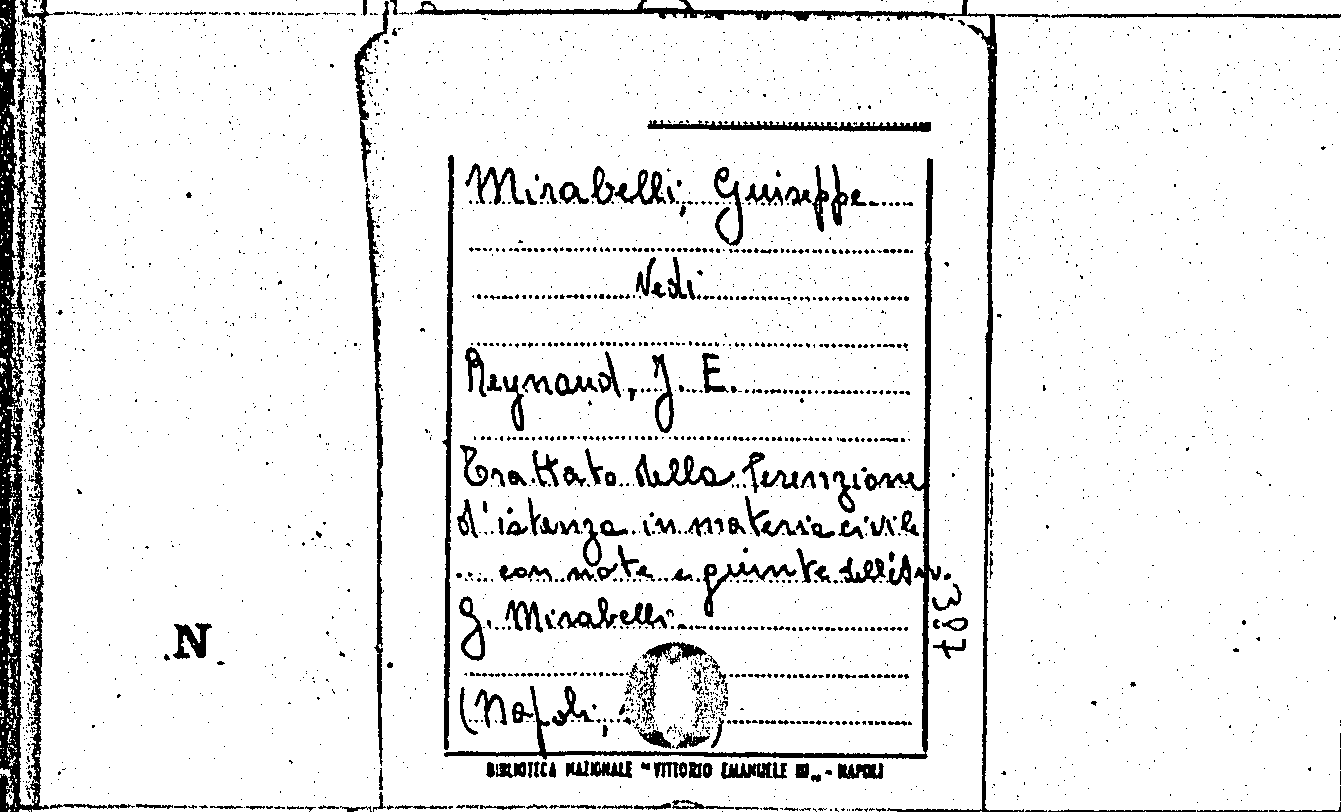 Mirabelli, Giuseppe
Vedi
Reynaud, J. E.
Trattato della Perenzione
d'istanza in materia civile
... con note e giunte dell'Avv.
G. Mirabelli
387
N
(Napoli, )
BIBLIOTECA NAZIONALE "VITTORIO EMANUELE III" - NAPOLI